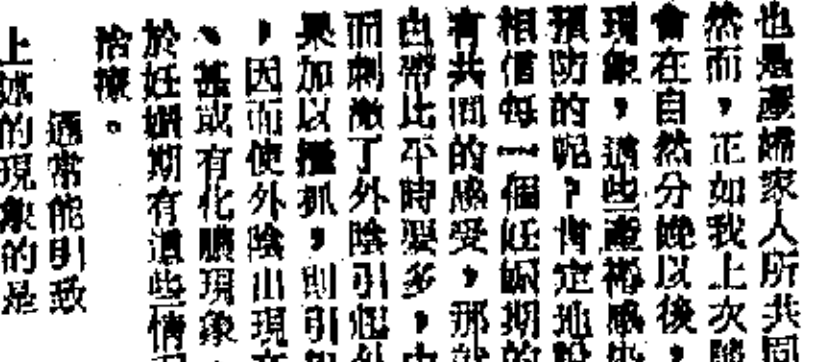 也是產婦家人所共同
然而，正如我上次
會在自然分娩以後，
現象，這些產褥感
預防的呢？肯定地說
相信每一個妊娠期的
有共同的感受，那就
白帶比平時要多，由
而刺激了外陰引起外
果加以搔抓，則引
，因而使外陰出現
、甚或有化膿現象，
於妊娠期有這些情況
搶癢。
通常能引致
上述的現象的是